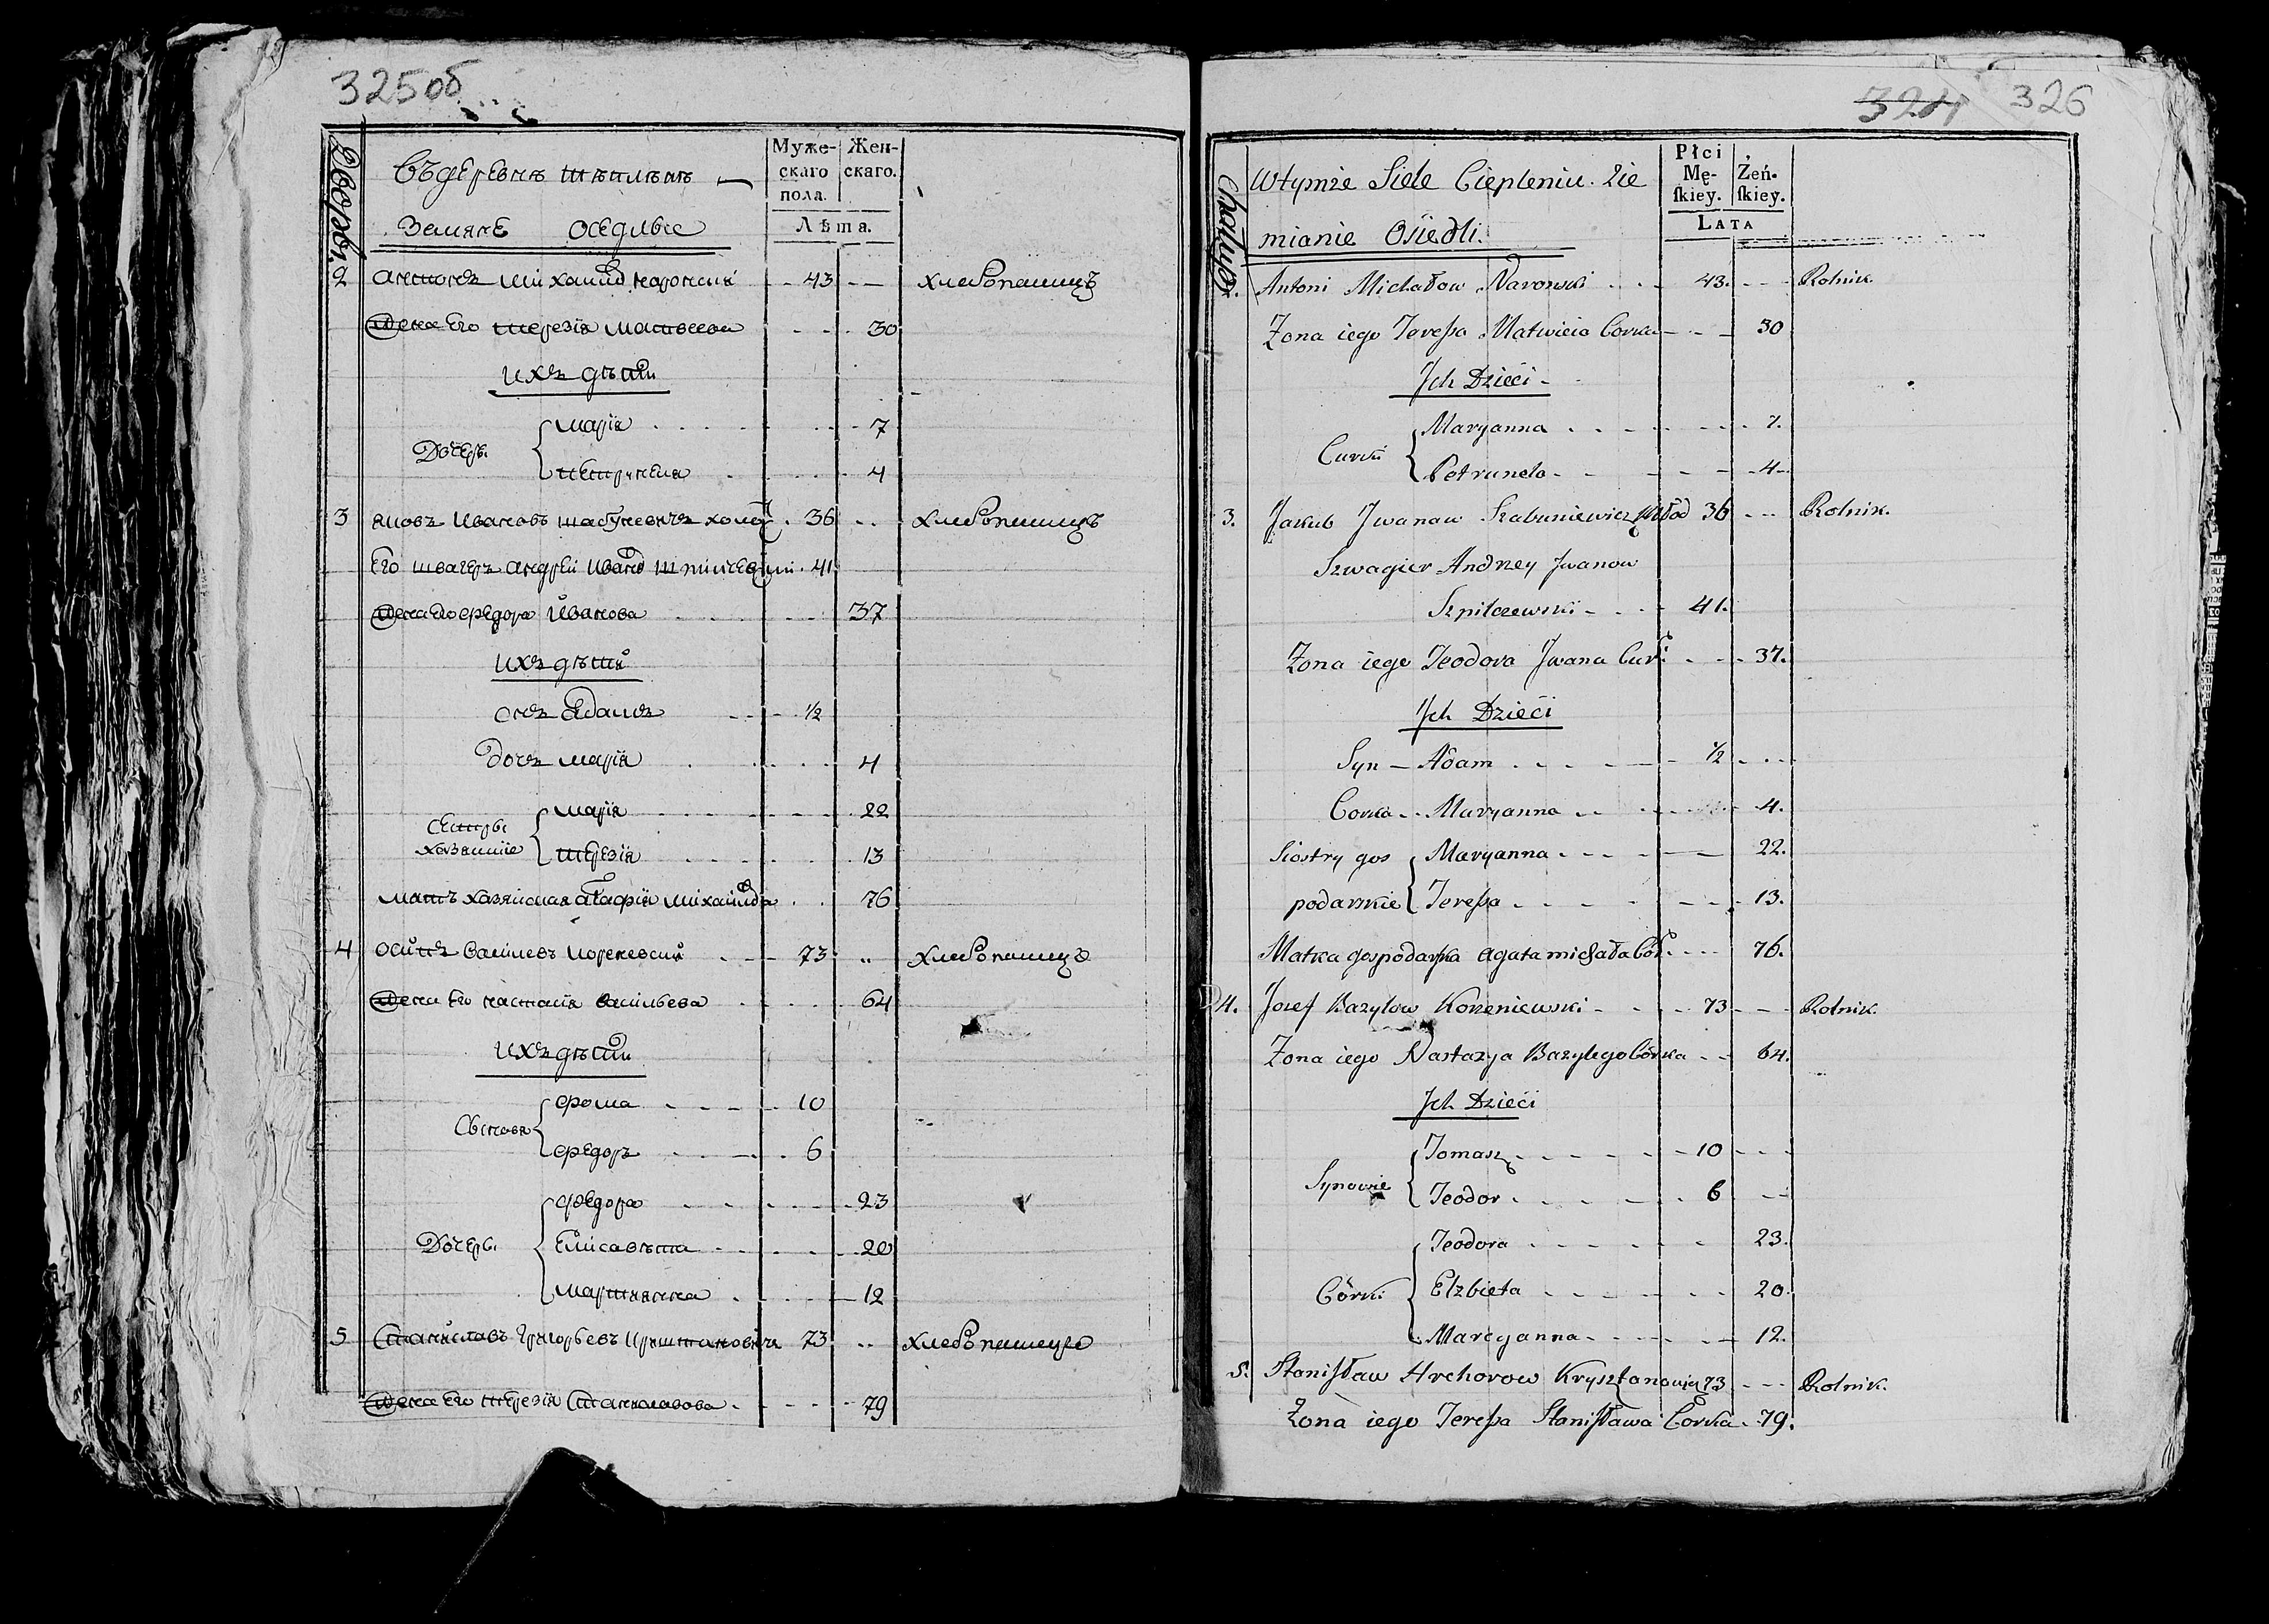 325об
Дворы.
Въ деревнѣ тѣплѣнѣ
Земяне оседлые
Муже-
скаго
пола.
Жен-
скаго.
Лѣта.
2 Антонъ михайлов наронский 43 хлебопашецъ
Жена Его терезия матвеева 30
ихъ дѣти
Дочеръ. мария 7
петрунеля 4
3 яковъ ивановъ шабуневичъ холос 36 хлебопашецъ
Его швагеръ андрей иванов шпилчевский 41
Жена его федора иванова 37
ихъ дѣти
Снъ адамъ 1/2
дочъ мария 4
Сестры мария 22
хозяйские терезия 13
матъ хозяйская агафия михайлова 76
4 осипъ васильевъ кореневский 73 хлебопашецъ
Жена Его настасия васильева 64
ихъ дѣти
Сыновя фома 10
федоръ 6
Дочеръ федора 23
Елисавѣта 20
мартянна 12
5 Станиславъ григорьевъ криштановичъ 73 хлебопашецъ
Жена Его терезия Станиславова 79
324 326
Chałupy
Wtymże Siele Ciepleniu. Zie
mianie Osiedli.
Płci
Mę-
ſkiey.
Żeń-
ſkiey.
LATA
2. Antoni Michałow Naronski 43. Rolnik.
Zona iego Tereſsa Matwieia Corka 30
Jch Dzieći
Curki Maryanna 7.
Petrunela 4
3. Jakub Jwanow Szabuniewicz Młod 36 Rolnik.
Szwagier Andrzey Jwanow
Szpilczewski 41.
Zona iego Teodora Jwana Cur. 37.
Jch Dzieći
Syn Adam 1/2
Corka Maryanna 4.
Siostry gos Maryanna 22.
podarskie Tereſsa 13.
Matka gospodarska agata michała Cór. 76.
4. Jozef Bazylow Korzeniewski 73 Rolnik.
Zona iego Nastazya Bazylego Córka 64.
Jch Dzieći
Synowie Tomasz 10
Teodor 6
Teodora 23.
Córki Elzbieta 20.
Marcyanna 12.
5. Staniſław Hrehorow Krysztanowicz 73 Rolnik.
Żona iego Tereſsa Staniſława Córka 79.